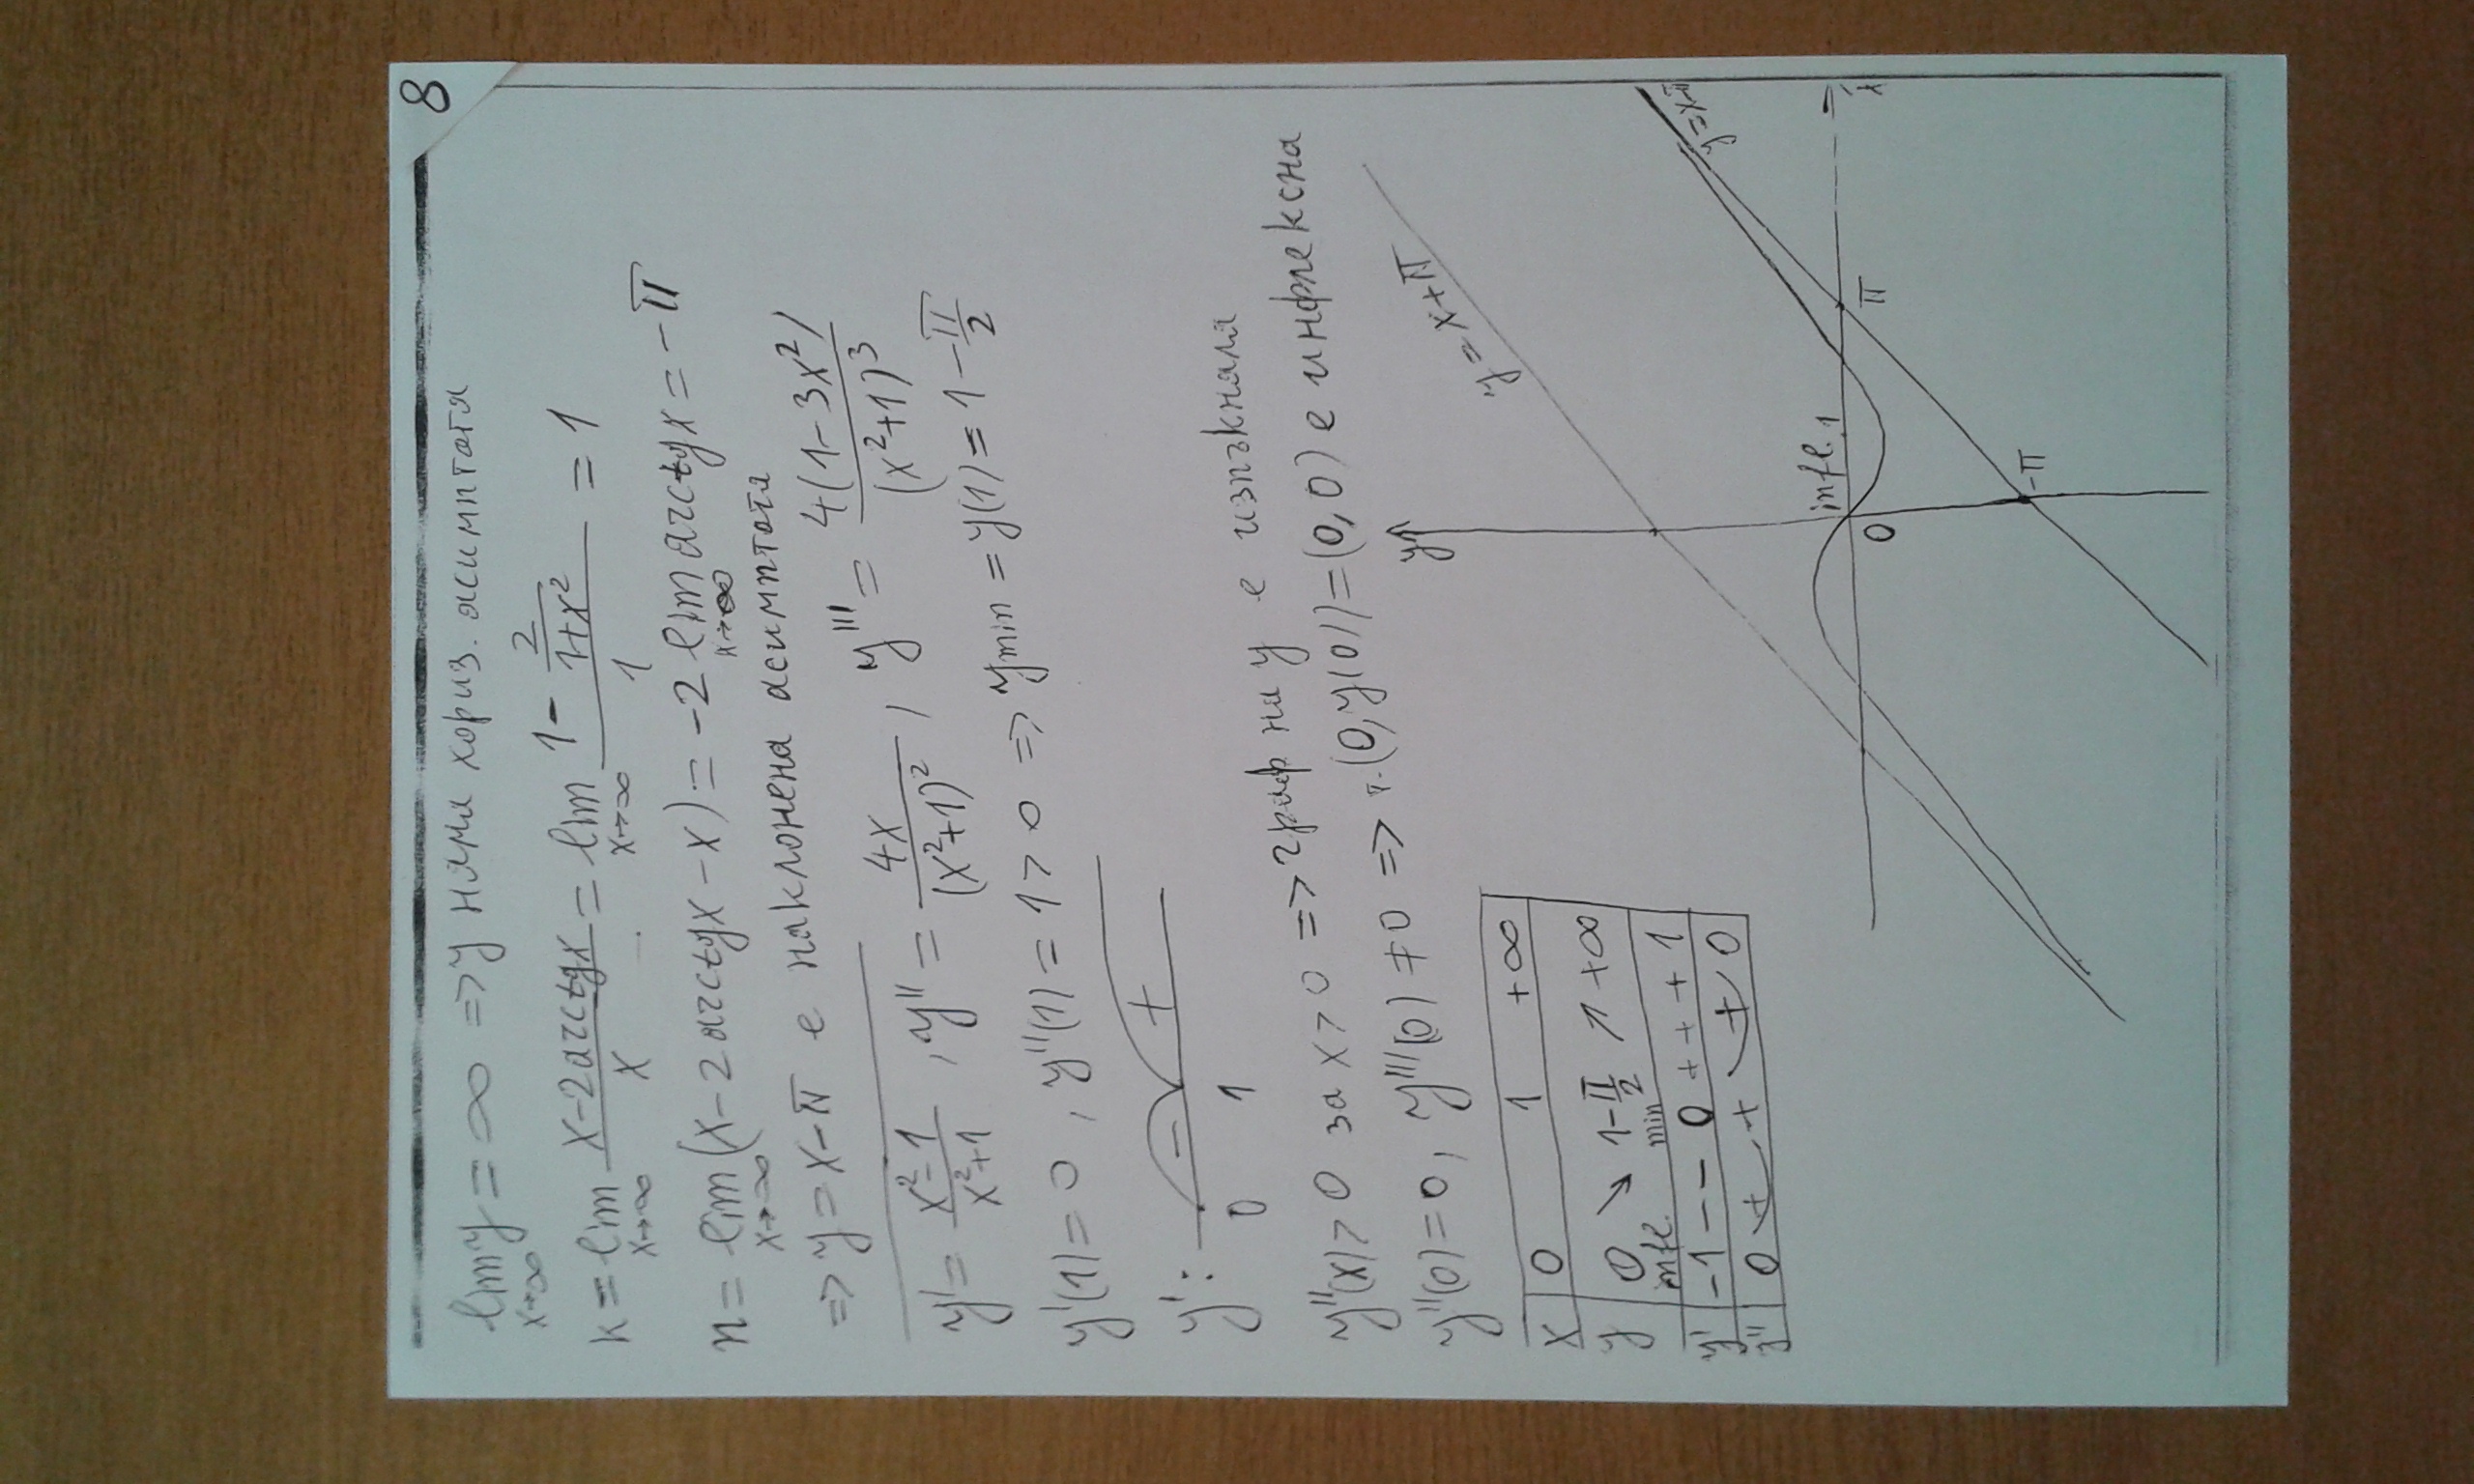 8
lim y = ∞ => y няма хориз. асимптота
x→∞
k = lim x→∞ (x - 2arctgx)/x = lim x→∞ (1 - 2/(1+x²))/1 = 1
n = lim x→∞ (x - 2arctgx - x) = -2 lim x→∞ arctgx = -π
=> y = x - π е наклонена асимптота
y' = (x²-1)/(x²+1), y'' = 4x/(x²+1)², y''' = 4(1-3x²)/(x²+1)³
y'(1) = 0, y''(1) = 1 > 0 => ymin = y(1) = 1 - π/2
y': - +
0 1
y''(x) > 0 за x > 0 => граф на y е изпъкнала
y''(0) = 0, y'''(0) ≠ 0 => т. (0, y(0)) = (0, 0) е инфлексна
x | 0 1 +∞
y | 0 ↘ 1-π/2 ↗ +∞
infl. min
y' | -1 - - 0 + + + 1
y'' | 0 + + + 0
y
y = x+π
y = x-π
infl. 1
0
π
x
-π